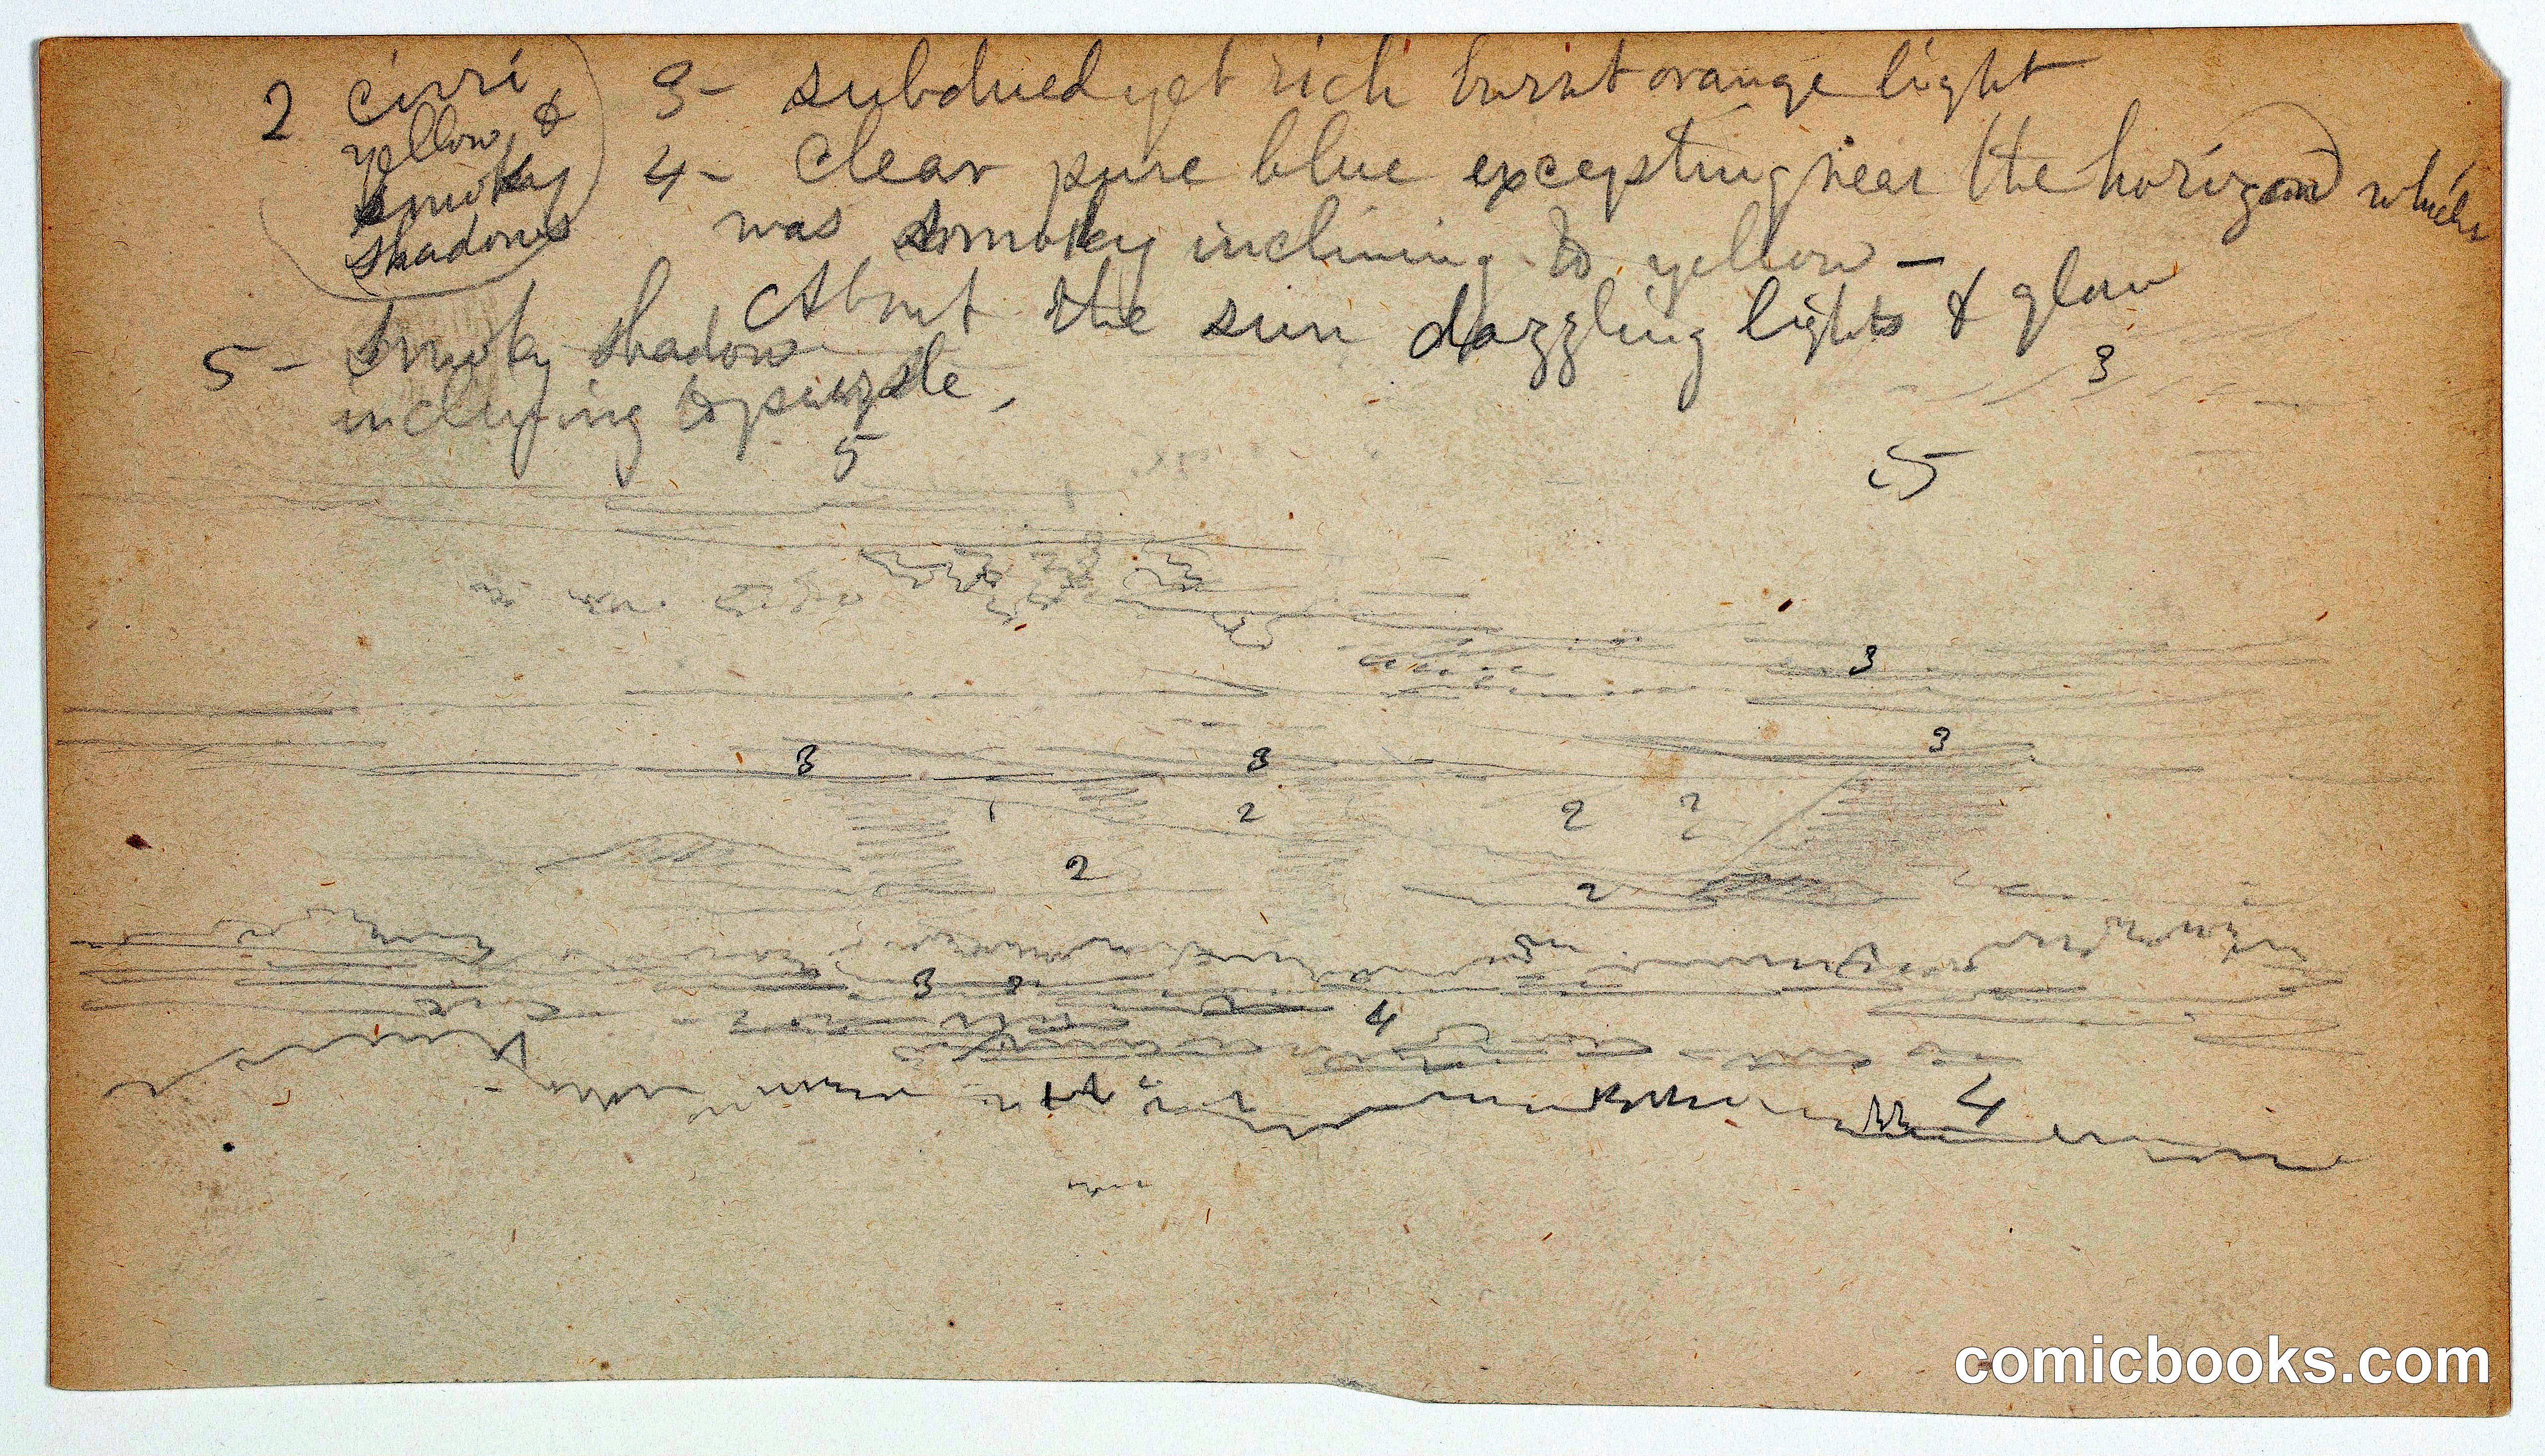 2 cirri
yellow &
smoky
shadows
3- subdued yet rich burnt orange light
4- Clear pure blue excepting near the horizon which
was smoky inclining to yellow —
About the sun dazzling lights & glow
5- smoky shadow
inclining to purple,
3
5
5
3
3
3
3
2
2
2
2
2
3
4
4
comicbooks.com